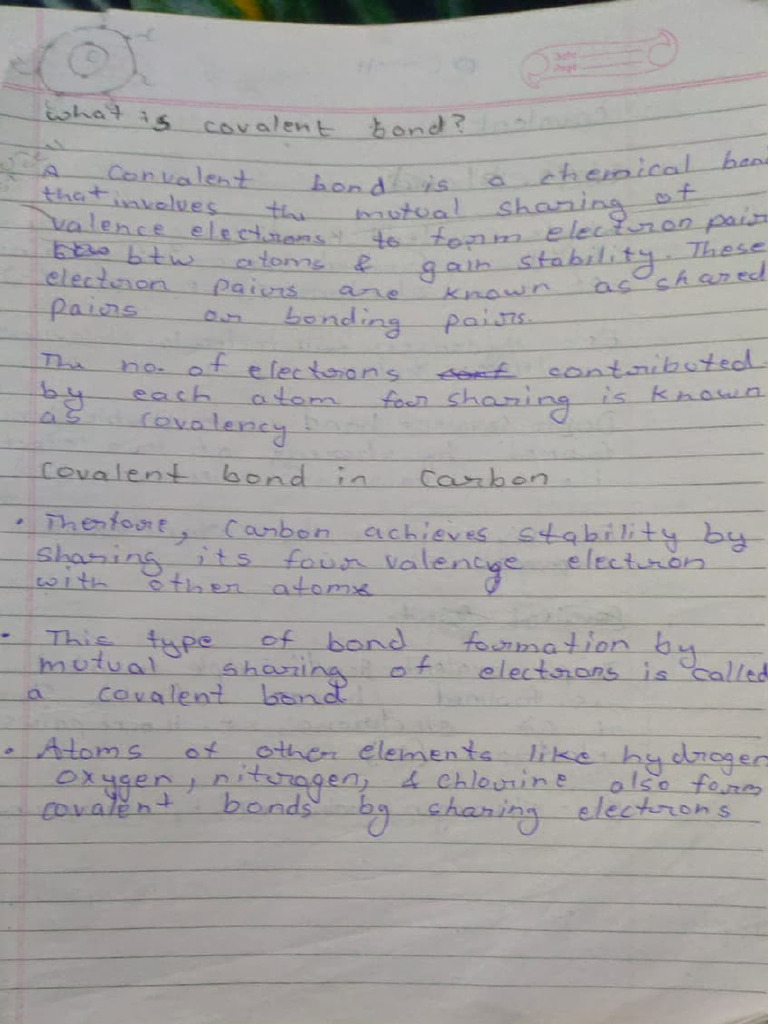 what is covalent bond?
A Convalent bond is a chemical bon
that involves the mutual sharing of
valence electrons to form electron pair
btw btw atoms & gain stability. These
electron pairs are known as shared
pairs or bonding pairs.
The no. of electrons conf contributed
by each atom for sharing is known
as covalency
Covalent bond in Carbon
• Therfore, Carbon achieves stability by
sharing its four valencye electron
with other atoms
• This type of bond formation by
mutual sharing of electrons is called
a covalent bond
• Atoms of other elements like hydrogen
oxygen, nitrogen, & chlorine also form
covalent bonds by sharing electrons